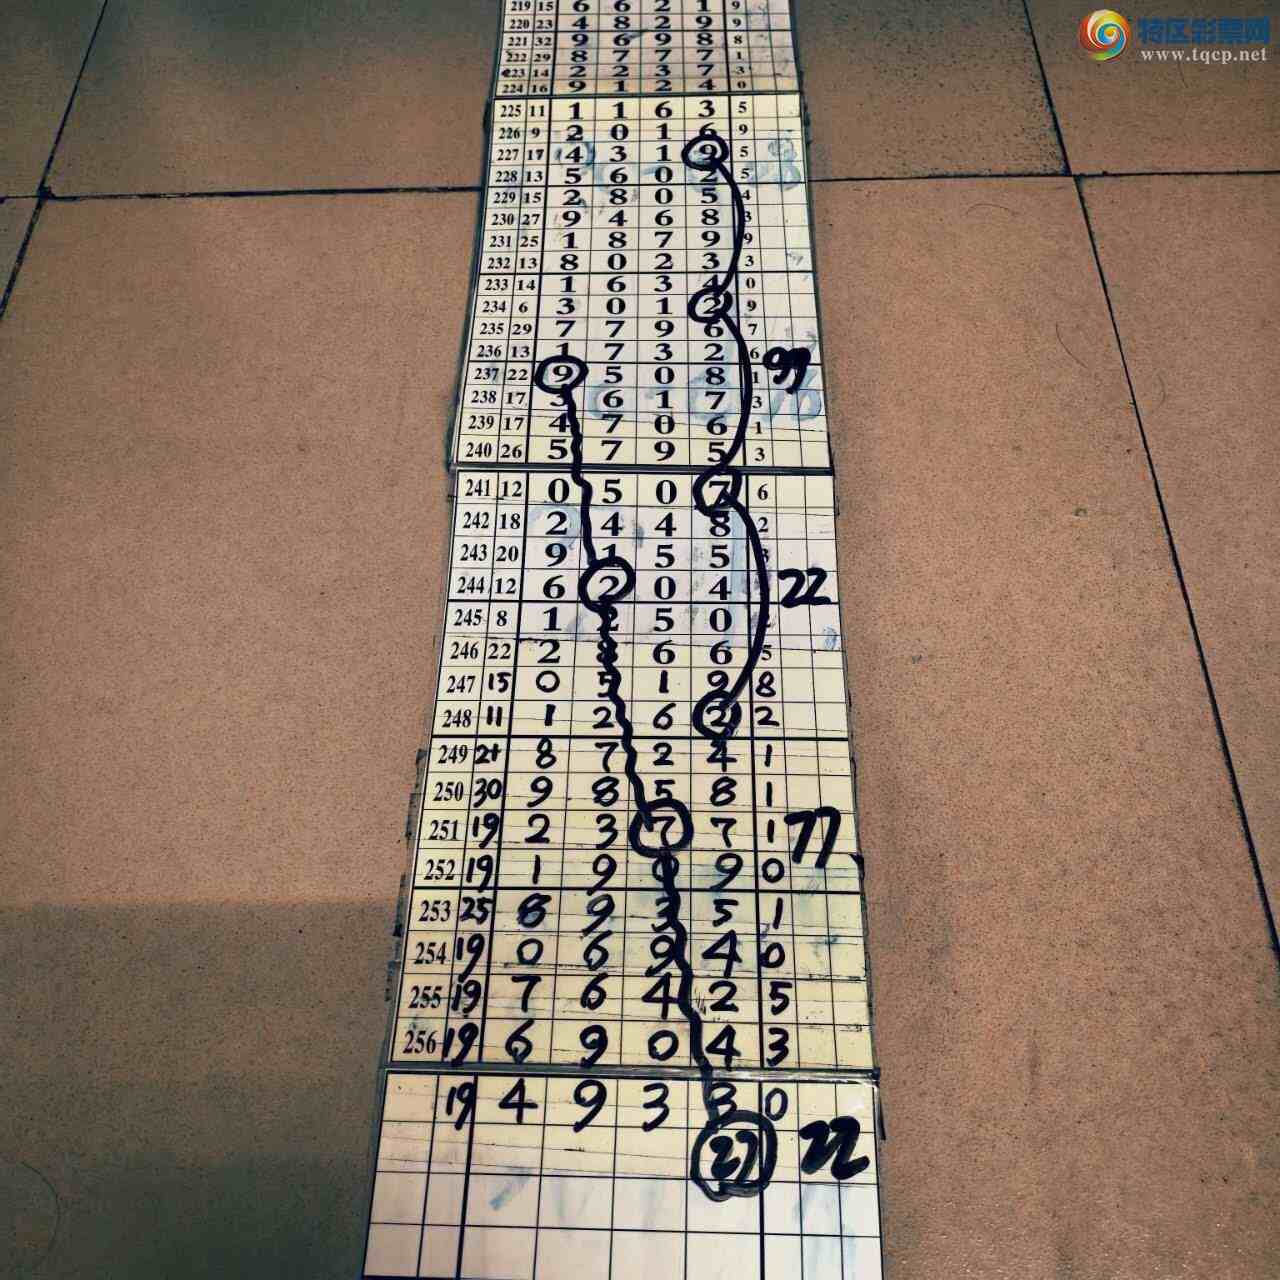 特区彩票网
www.tqcp.net
219 15 6 6 2 1 9
220 23 4 8 2 9 9
221 32 9 6 9 8 8
222 29 8 7 7 7 1
223 14 2 2 3 7 3
224 16 9 1 2 4 0
225 11 1 1 6 3 5
226 9 2 0 1 6 9
227 17 4 3 1 9 5
228 13 5 6 0 2 5
229 15 2 8 0 5 4
230 27 9 4 6 8 3
231 25 1 8 7 9 9
232 13 8 0 2 3 3
233 14 1 6 3 4 0
234 6 3 0 1 2 9
235 29 7 7 9 6 7
236 13 1 7 3 2 6 99
237 22 9 5 0 8 1
238 17 3 6 1 7 3
239 17 4 7 0 6 1
240 26 5 7 9 5 3
241 12 0 5 0 7 6
242 18 2 4 4 8 2
243 20 9 1 5 5 3
244 12 6 2 0 4 22
245 8 1 2 5 0
246 22 2 8 6 6 5
247 15 0 5 1 9 8
248 11 1 2 6 2 2
249 21 8 7 2 4 1
250 30 9 8 5 8 1
251 19 2 3 7 7 1 77
252 19 1 9 0 9 0
253 25 8 9 3 5 1
254 19 0 6 9 4 0
255 19 7 6 4 2 5
256 19 6 9 0 4 3
19 4 9 3 3 0
27 22